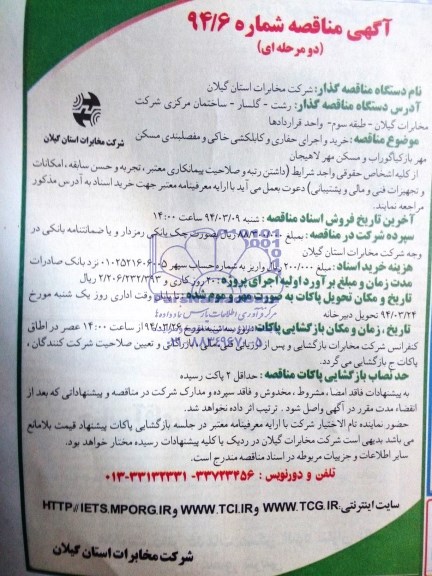 آگهی مناقصه شماره ۹۴/۶
(دو مرحله ای)
شرکت مخابرات استان گیلان
نام دستگاه مناقصه گذار: شرکت مخابرات استان گیلان
آدرس دستگاه مناقصه گذار: رشت - گلسار - ساختمان مرکزی شرکت
مخابرات گیلان - طبقه سوم- واحد قراردادها
موضوع مناقصه: خرید و اجرای حفاری و کابلکشی خاکی و مفصلبندی مسکن
مهر بازکیاگوراب و مسکن مهر لاهیجان
از کلیه اشخاص حقوقی واجد شرایط (داشتن رتبه و صلاحیت پیمانکاری معتبر، تجربه و حسن سابقه، امکانات
و تجهیزات فنی و مالی و پشتیبانی) دعوت بعمل می آید با ارایه معرفینامه معتبر جهت خرید اسناد به آدرس مذکور
مراجعه نمایند.
آخرین تاریخ فروش اسناد مناقصه: شنبه ۹۴/۰۳/۰۹ ساعت ۱۴:۰۰
سپرده شرکت در مناقصه: بمبلغ ریال بصورت چک بانکی رمزدار و یا ضمانتنامه بانکی در
وجه شرکت مخابرات استان گیلان
هزینه خرید اسناد: مبلغ ۲۰۰/۰۰۰ ریال واریز به شماره حساب سپهر نزد بانک صادرات
مدت زمان و مبلغ برآورد اولیه اجرای پروژه: روز کاری و ۲/۲۰۶/۲۳۲/۳۹۳ ریال
تاریخ و مکان تحویل پاکات به صورت مهر و موم شده: تا پایان وقت اداری روز یک شنبه مورخ
۹۴/۰۳/۲۴ تحویل دبیرخانه
تاریخ، زمان و مکان بازگشایی پاکات: روز سه شنبه مورخ ۹۴/۰۳/۲۶ از ساعت ۱۴:۰۰ عصر در اطاق
کنفرانس شرکت مخابرات بازگشایی و پس از ارزیابی فنی مالی، بازرگانی و تعیین صلاحیت شرکت کنندگان،
پاکات ج بازگشایی می گردد.
حد نصاب بازگشایی پاکات مناقصه: حداقل ۲ پاکت رسیده
به پیشنهادات فاقد امضا، مشروط، مخدوش و فاقد سپرده و مدارک شرکت در مناقصه و پیشنهاداتی که بعد از
انقضاء مدت مقرر در آگهی واصل شود، ترتیب اثر داده نخواهد شد.
حضور نماینده تام الاختیار شرکت با ارایه معرفینامه معتبر در جلسه بازگشایی پاکات پیشنهاد قیمت بلامانع
می باشد بدیهی است شرکت مخابرات گیلان در ردیک یا کلیه پیشنهادات رسیده مختار خواهد بود.
سایر اطلاعات و جزییات مربوطه در اسناد مناقصه مندرج است.
تلفن و دورنویس: ۳۳۷۲۳۴۵۶ - ۰۱۳-۳۳۱۳۲۲۳۳۱
سایت اینترنتی: WWW.TCG.IR و WWW.TCI.IR و HTTP//IETS.MPORG.IR
شرکت مخابرات استان گیلان